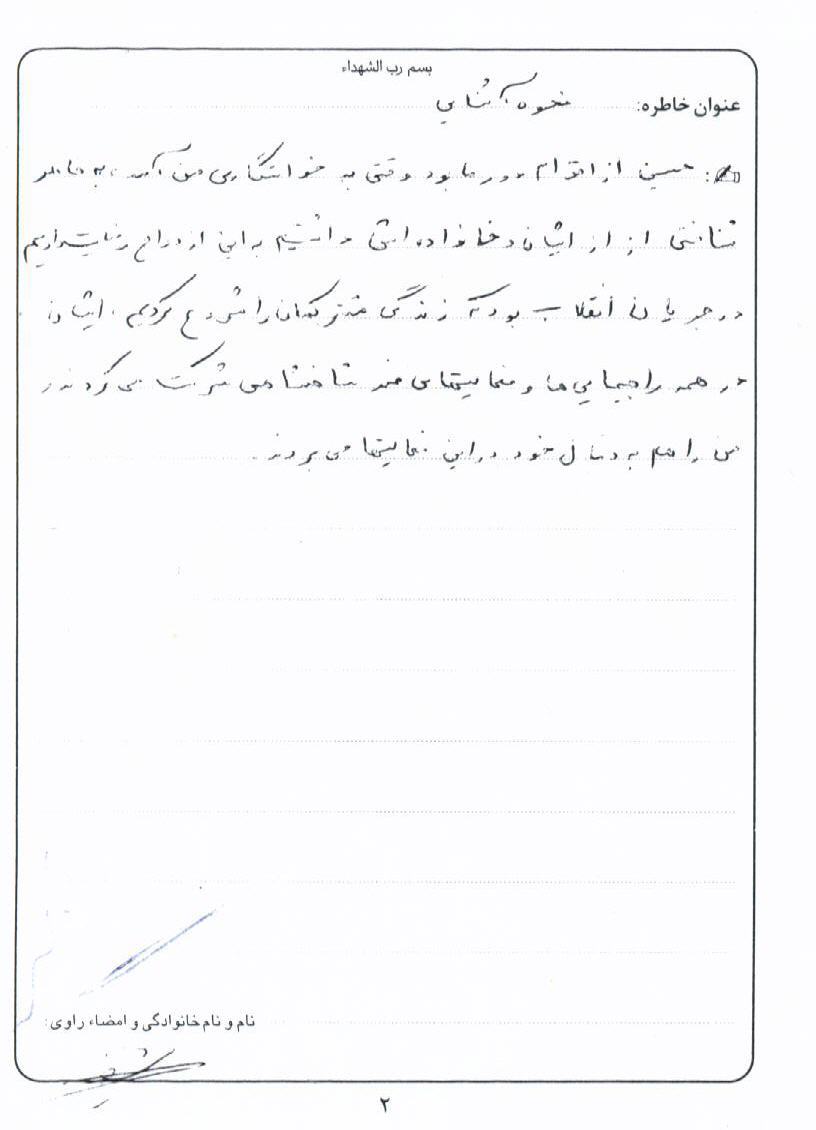 بسم رب الشهداء
عنوان خاطره: نحوه آشنایی
حسین از اقوام دور ما بود وقتی به خواستگاری من آمد، به خاطر
شناختی از از ایشان و خانواده اش داشتیم به این ازدواج رضایت دادیم
در جریان انقلاب بود که زندگی مشترکمان را شروع کردیم، ایشان
در همه راهپیمایی ها و فعالیتهای ضد شاهنشاهی شرکت می کردند و
من را هم به دنبال خود در این فعالیتها می بردند.
نام و نام خانوادگی و امضاء راوی:
۲